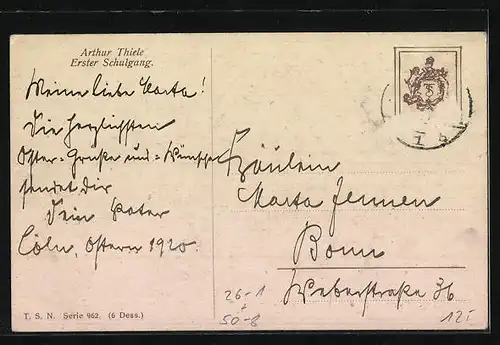 Arthur Thiele
Erster Schulgang.
Meine liebe Marta!
Die herzlichsten
Oster-Grüße und -Wünsche
sendet dir
Dein Vater
Cöln, Ostern 1920.
Fräulein
Marta Jennen
Bonn
Weberstraße 36
T. S. N. Serie 962. (6 Dess.)
26-1
50-8
12.-